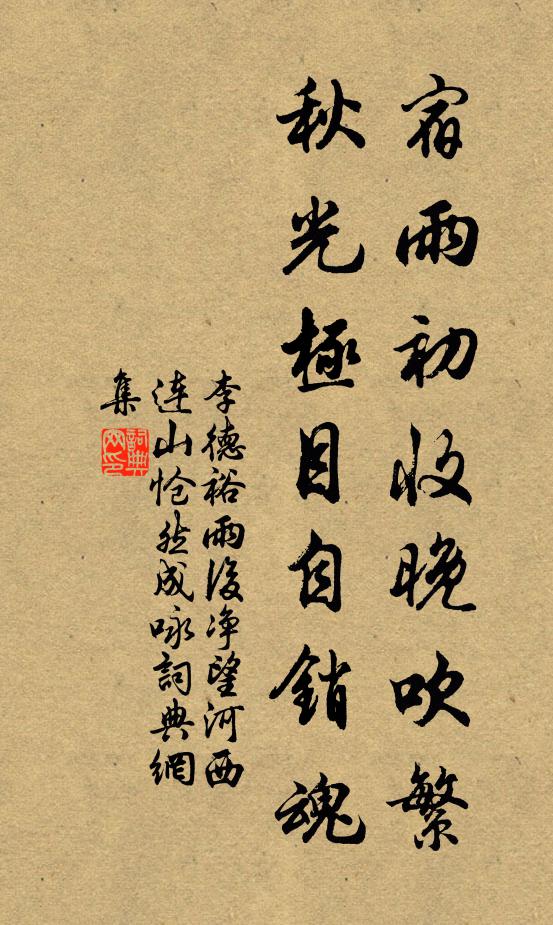 宿雨初收晚吹繁
秋光極目自銷魂
李德裕雨後净望河西
连山怆然成咏詞典網
集
詞典网印